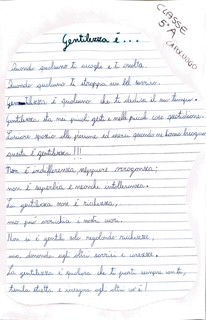 Gentilezza è...
CLASSE
5^A
CADELUNGO
Quando qualcuno ti accoglie e ti ascolta.
Quando qualcuno ti strappa un bel sorriso.
Gentilezza è qualcuno che ti dedica il suo tempo.
Gentilezza sta nei piccoli gesti e nelle piccole cose quotidiane.
Lasciare spazio alle persone ed esserci quando ne hanno bisogno
questa è gentilezza!!!
Non è indifferenza, neppure arroganza;
non è superbia e neanche intolleranza.
La gentilezza non è ricchezza,
ma può arricchire i nostri cuori.
Non si è gentili solo regalando ricchezze,
ma donando agli altri sorrisi e carezze.
La gentilezza è qualcosa che ti porti sempre accanto,
tienila stretta e insegna agli altri cos'è!